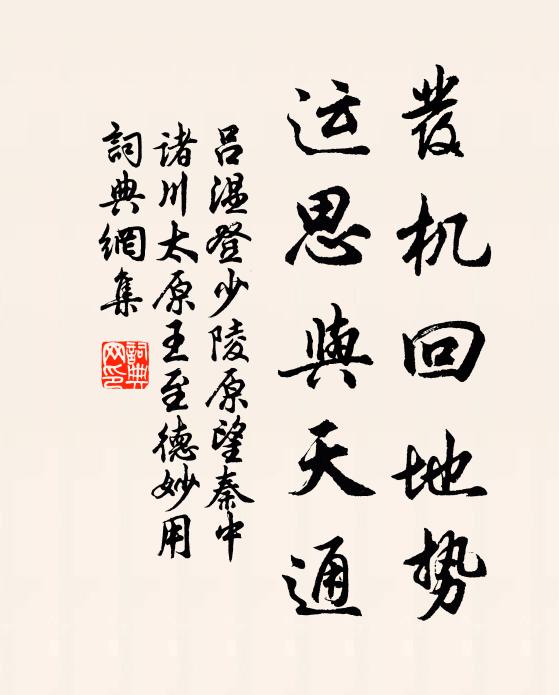 發机回地势
运思與天通
吕温登少陵原望秦中
诸川太原王至德妙用
詞典網集
詞典网印